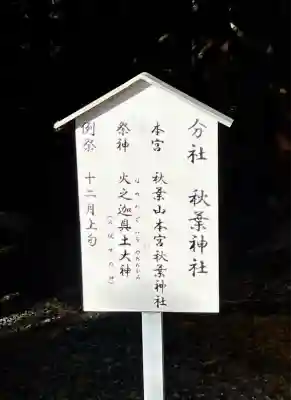 分社 秋葉神社
本宮 秋葉山本宮秋葉神社
祭神 火之迦具土大神
例祭 十二月上旬